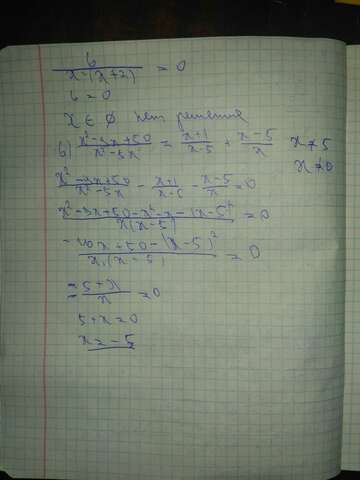 6 / x·(x+2) = 0
6 = 0
x ∈ ∅ нет решения
б) x²-9x+50 / x²-5x = x+1 / x-5 + x-5 / x x≠5
x≠0
x²-9x+50 / x²-5x - x+1 / x-5 - x-5 / x = 0
x²-9x+50-x²-x-(x-5)² / x(x-5) = 0
-10x+50-(x-5)² / x·(x-5) = 0
= 5+x / x = 0
5+x=0
x=-5